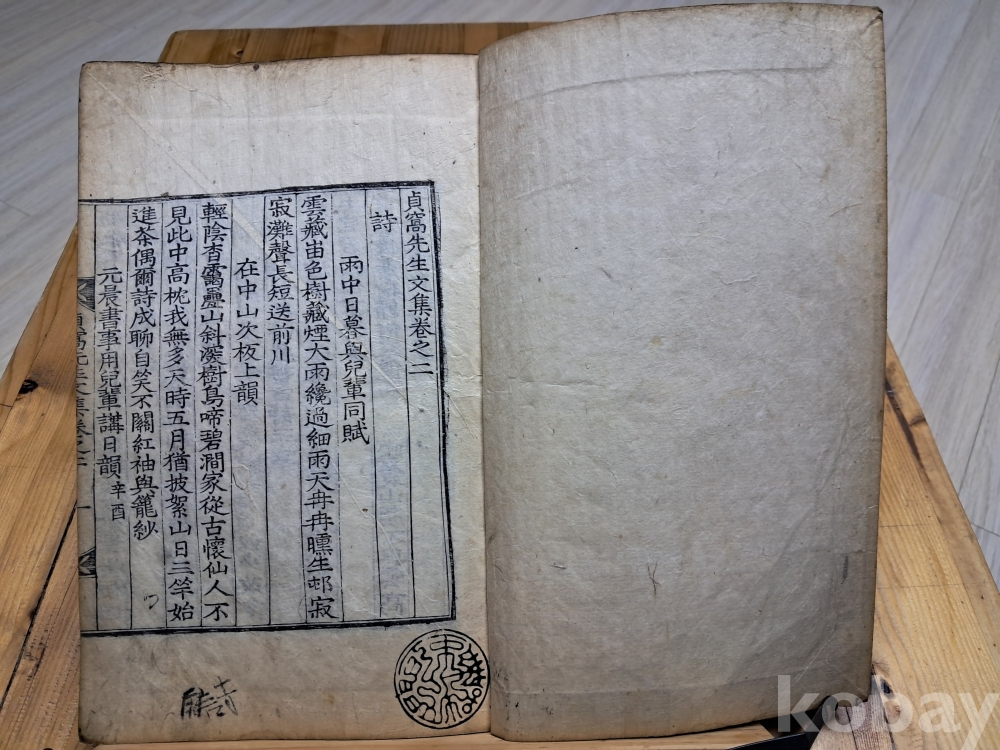 貞窩先生文集卷之二
詩
雨中日暮與兒輩同賦
雲藏峀色樹藏煙大雨纔過細雨天冉冉曛生邨寂
寂灘聲長短送前川
在中山次板上韻
輕陰杳靄疊山斜深樹鳥啼碧澗家從古懷仙人不
見此中高枕我無多天時五月猶披絮山日三竿始
進茶偶爾詩成聊自笑不關紅袖與籠紗
元晨書事用兒輩講日韻 辛酉
kobay